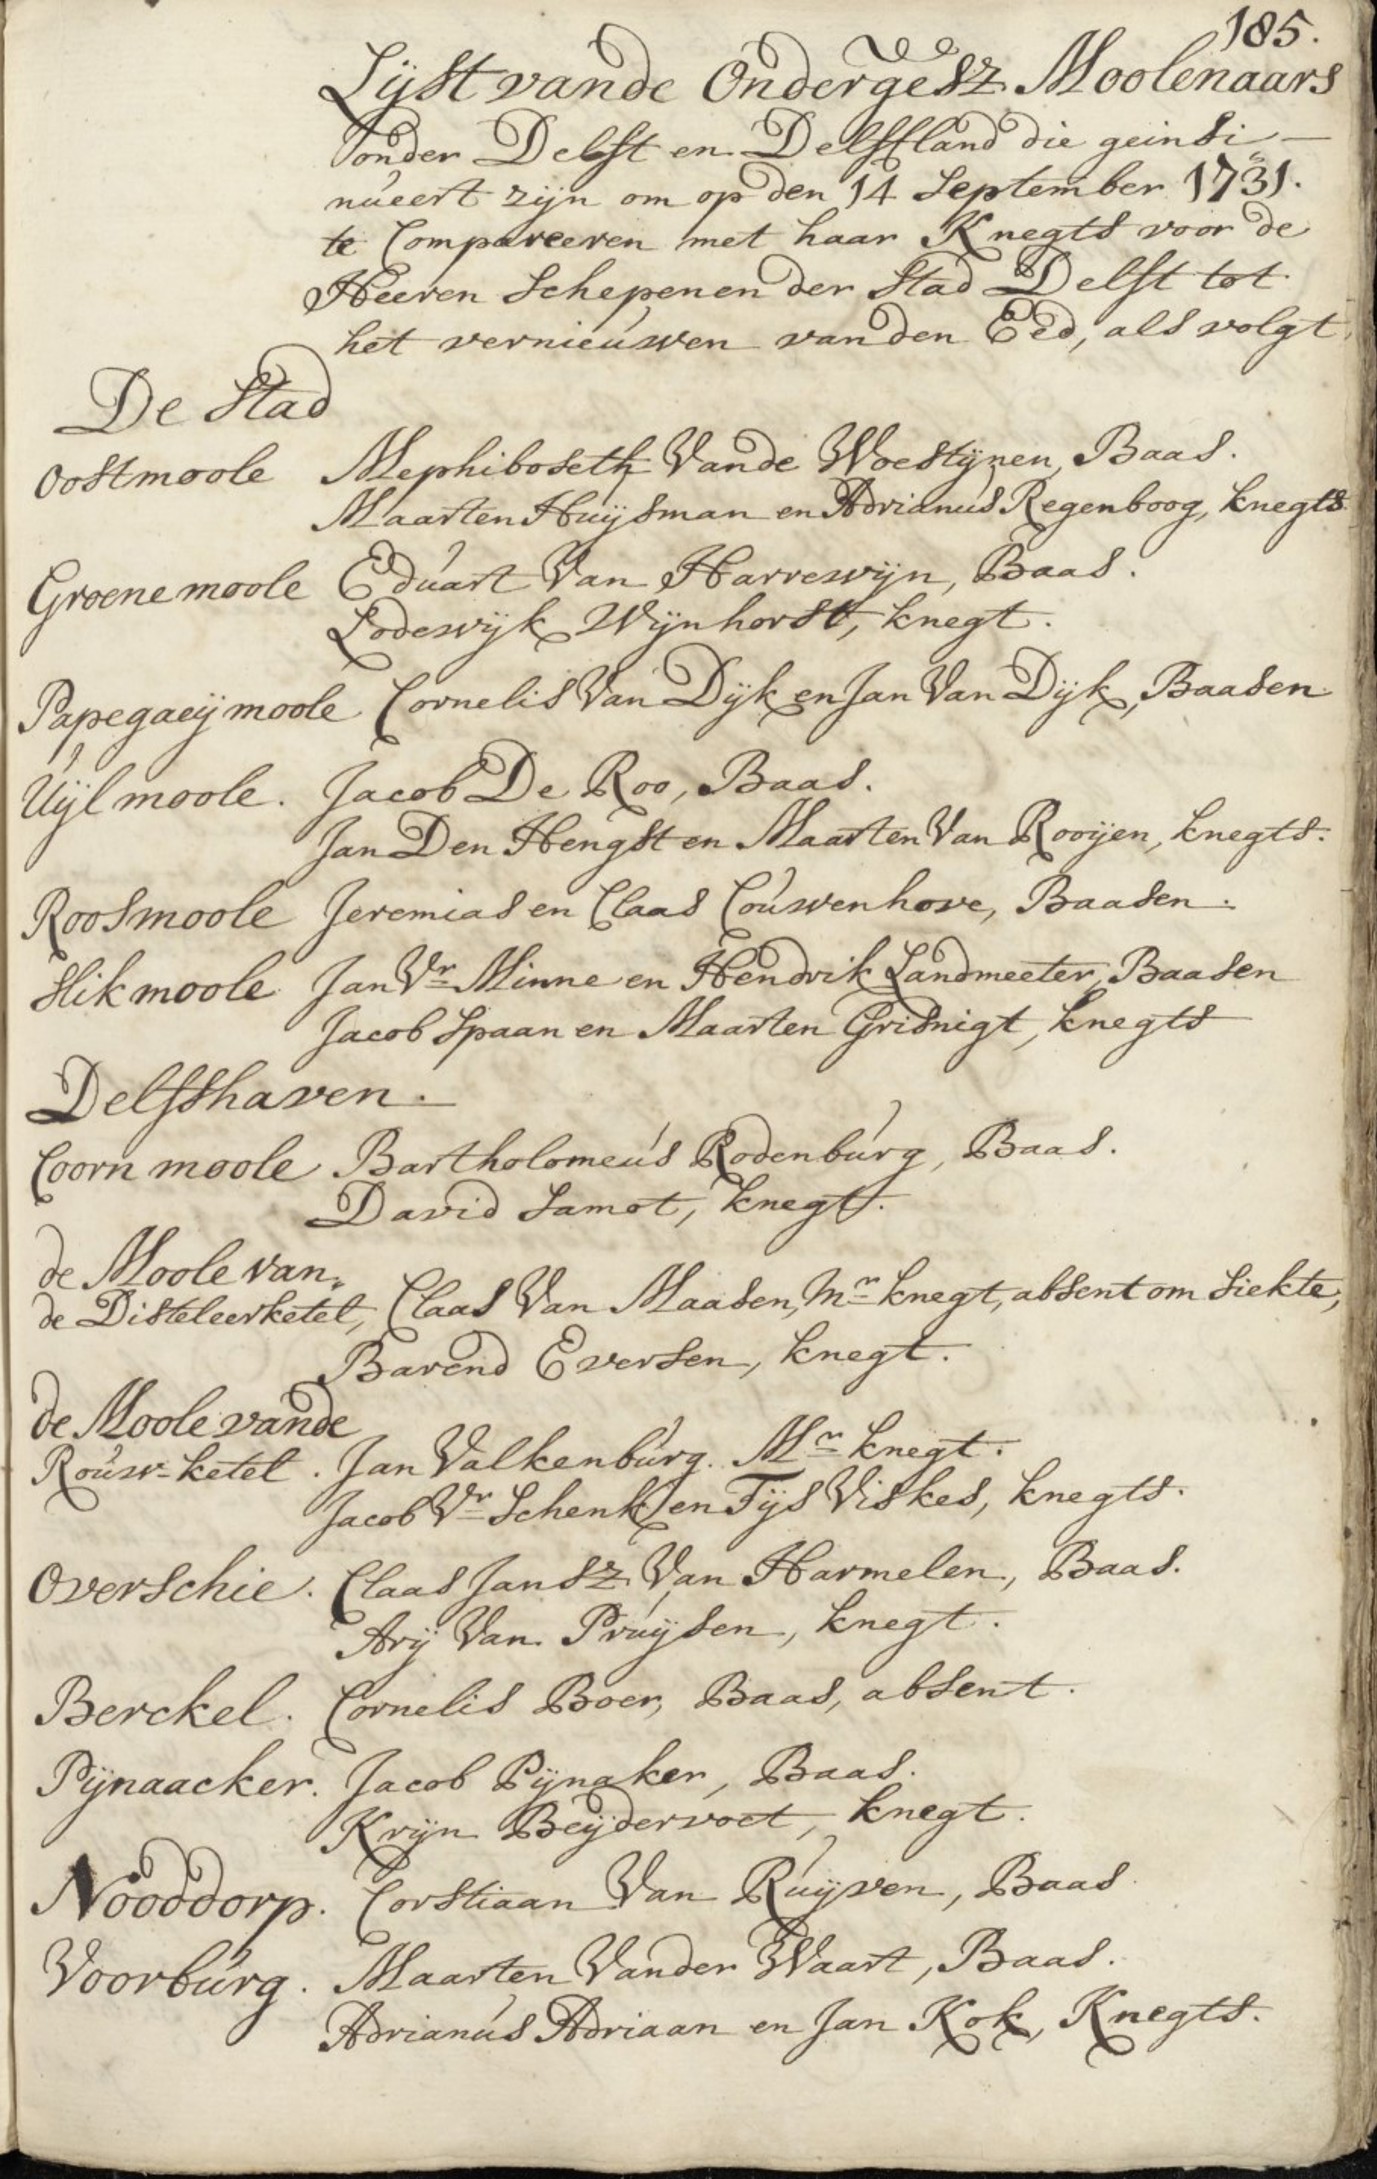 185.
Lijst vande Ondergesz. Moolenaars
onder Delft en Delffland die geinsi-
nueert zijn om op den 14 September 1731.
te Compareeren met haar Knegts voor de
Heeren Schepenen der Stad Delft tot
het vernieuwen vanden Eed, als volgt,
De Stad
Oostmoole Mephiboseth Vande Woestijnen, Baas.
Maarten Huijsman en Adrianus Regenboog, knegts.
Groene moole Eduart Van Harrewijn, Baas.
Lodewijk Wijnhorst, knegt.
Papegaeij moole Cornelis Van Dijk en Jan Van Dijk, Baasen
Uijl moole. Jacob De Roo, Baas.
Jan Den Hengst en Maarten Van Rooijen, knegts.
Roosmoole Jeremias en Claas Couwenhove, Baasen.
Slikmoole Jan Vr Minne en Hendrik Landmeeter, Baasen
Jacob Spaan en Maarten Grisnigt, knegts
Delfshaven.
Coorn moole Bartholomeus Rodenburg, Baas.
David Samot, knegt.
de Moole van
de Disteleerketel, Claas Van Maasen, Mr knegt, absent om siekte,
Barend Eversen, knegt.
de Moole vande
Rouw-ketel. Jan Valkenburg. Mr knegt.
Jacob Vr Schenk en Tijs Viskes, knegts.
Overschie. Claas Jansz. Van Harmelen, Baas.
Arij Van Pruijsen, knegt.
Berckel. Cornelis Boer, Baas, absent.
Pijnaacker. Jacob Pijnaker, Baas.
Krijn Beijdervoet, knegt.
Nooddorp. Corstiaan Van Ruijven, Baas
Voorburg. Maarten Vander Waart, Baas.
Adrianus Adriaan en Jan Kok, Knegts.